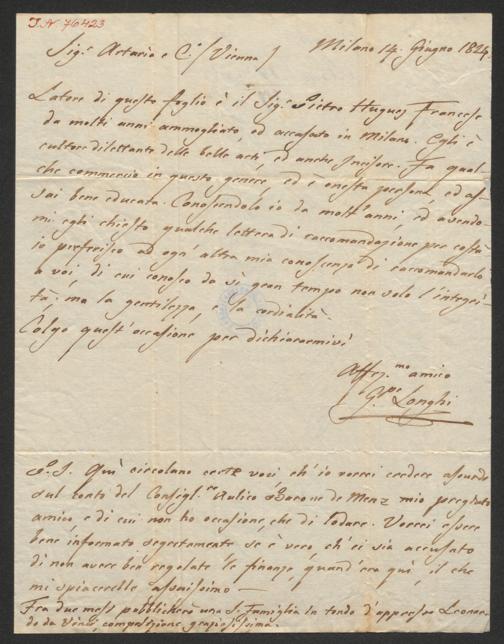 I.N. 76423
Sig.ⁱ Artaria e C.º (Vienna)
Milano 14. Giugno 1824.
Latore di questo foglio è il Sig.ʳ Pietro Hugues Francese
da molti anni ammogliato, ed accasato in Milano. Egli è
cultore dilettante delle belle arti, ed anche Incisore. Fa qual-
che commercio in questo genere, ed è onesta persona, ed as-
sai bene educata. Conoscendolo io da molt'anni, ed avendo-
mi egli chiesto qualche lettera di raccomandazione per costà
io preferisco ad ogn'altra mia conoscenza di raccomandarlo
a voi, di cui conosco da sì gran tempo non solo l'integri-
tà, ma la gentilezza, e la cordialità.
Colgo quest'occasione per dichiararmivi
Affez.ᵐᵒ amico
G.ᵖᵉ Longhi
P.S. Quì circolano certe voci ch'io vorrei credere assurde
sul conto del Consigl.ʳᵉ Aulico Barone de Menz mio pregiato
amico e di cui non ho occasione, che di lodare. Vorrei essere
bene informato segretamente se è vero, ch'ei sia accusato
di non avere ben regolate le finanze, quand'era quì, il che
mi spiacerebbe assaissimo —
Fra due mesi pubblicherò una S. Famiglia in tondo d'appresso Leonar-
do da Vinci, composizione graziosissima.